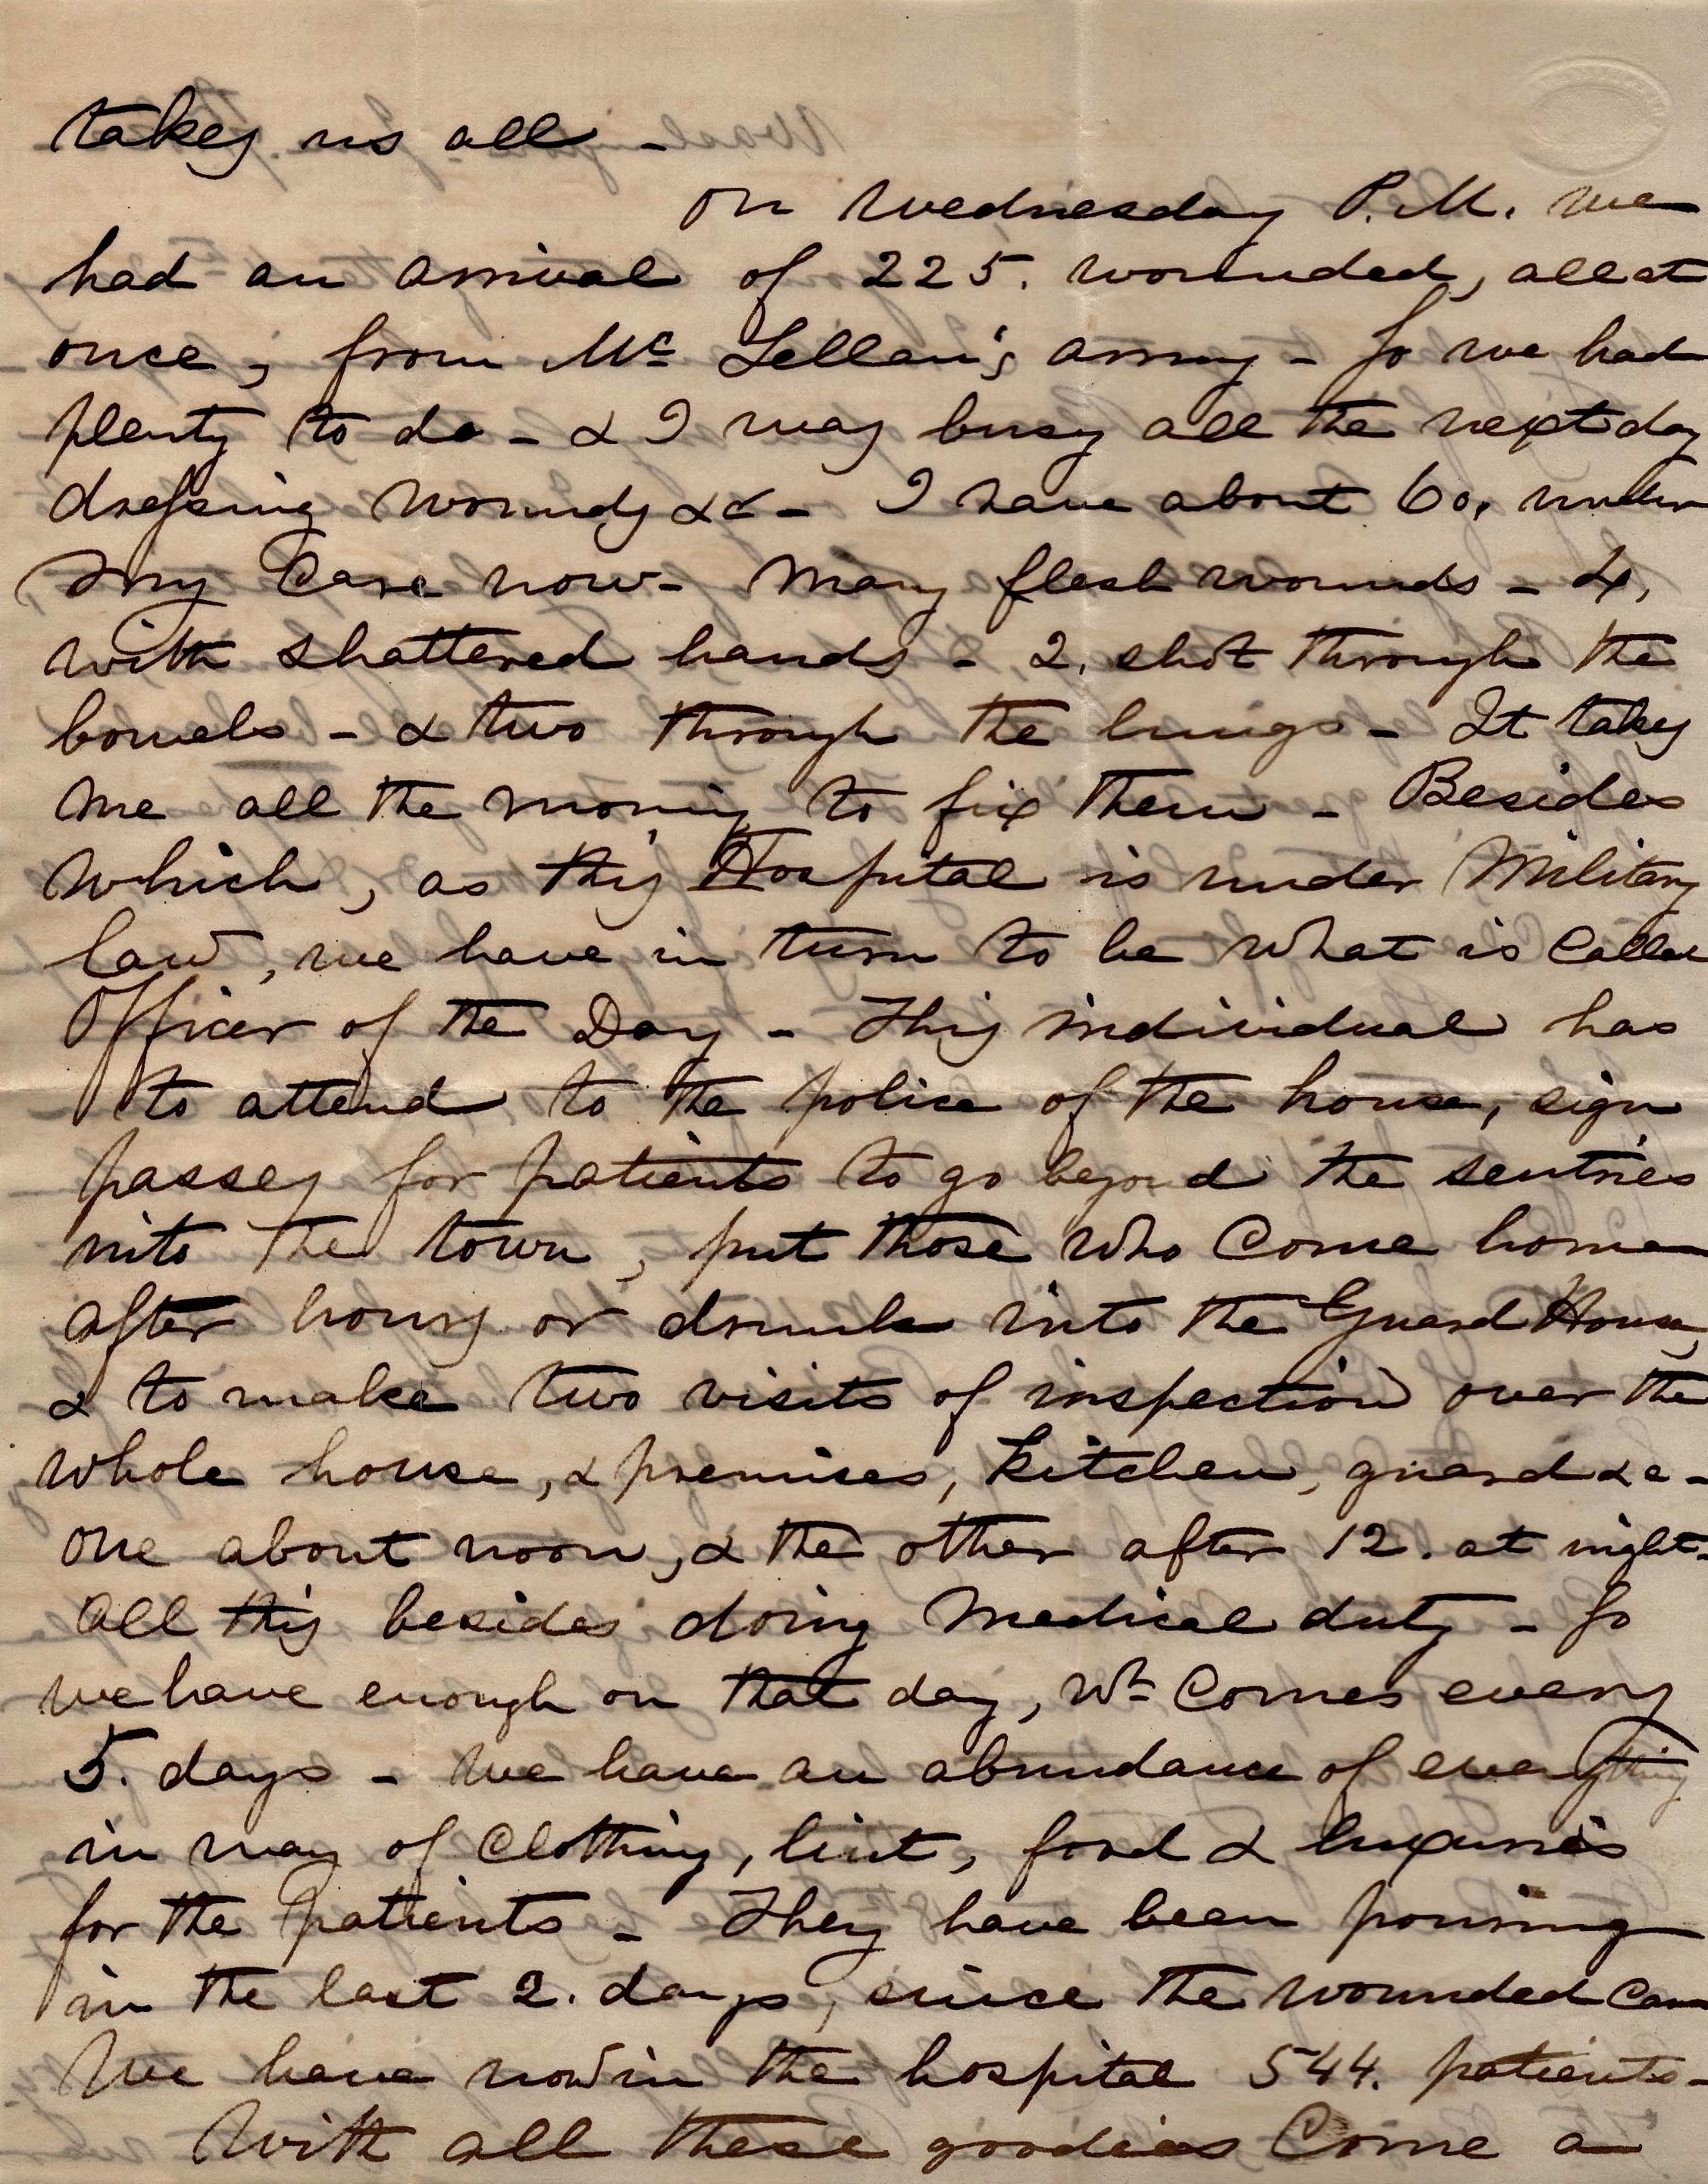 takes us all -
On Wednesday P.M. we
had an arrival of 225. wounded, all at
once, from Mc Lellan's army - So we had
plenty to do - & I was busy all the next day
dressing wounds &c - I have about 60, under
my care now - Many flesh wounds - 4,
with shattered hands - 2. shot through the
bowels - & two through the lungs - It takes
me all the morning to fix them - Besides
which, as this Hospital is under Military
law, we have in turn to be what is called
Officer of the Day - This individual has
to attend to the police of the house, sign
passes for patients to go beyond the sentries
into the town, put those who come home
after hours or drunk into the Guard House,
& to make two visits of inspection over the
whole house, & premises, kitchen, guard &c -
one about noon, & the other after 12. at night -
All this besides doing medical duty - So
we have enough on that day, wh comes every
5. days - We have an abundance of everything
in way of clothing, lint, food & luxuries
for the patients - They have been pouring
in the last 2. days, since the wounded came
We have now in the hospital 544. patients -
With all these goodies come a